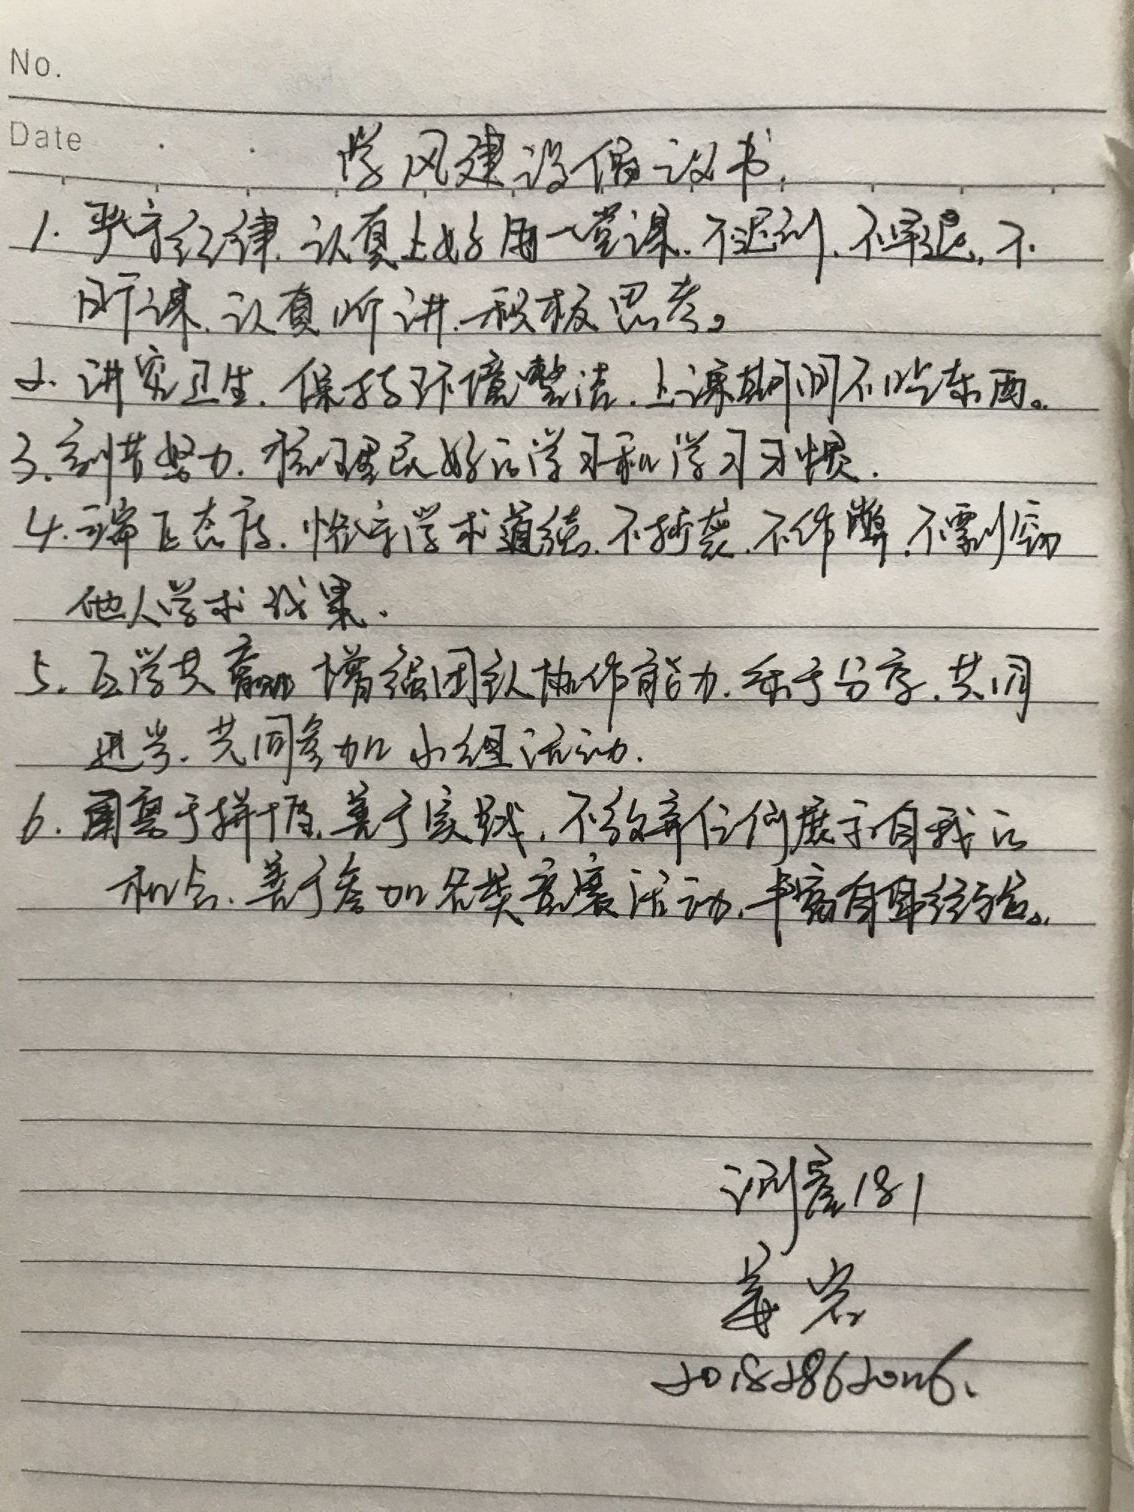 No.
Date
学风建设倡议书.
1. 严守纪律,认真上好每一堂课,不迟到,不早退,不
旷课,认真听讲,积极思考。
2. 讲究卫生,保持环境整洁,上课期间不吃东西。
3. 刻苦努力,梳理良好的学习和学习习惯.
4. 端正态度,恪守学术道德,不抄袭,不作弊,不剽窃
他人学术成果.
5. 互学共 增强团队协作能力,乐于分享,共同
进步,共同参加小组活动.
6. 勇于拼搏,善于实践,不放弃任何展示自我的
机会,善于参加各类竞赛活动,丰富自身经验。
测绘181
姜岩